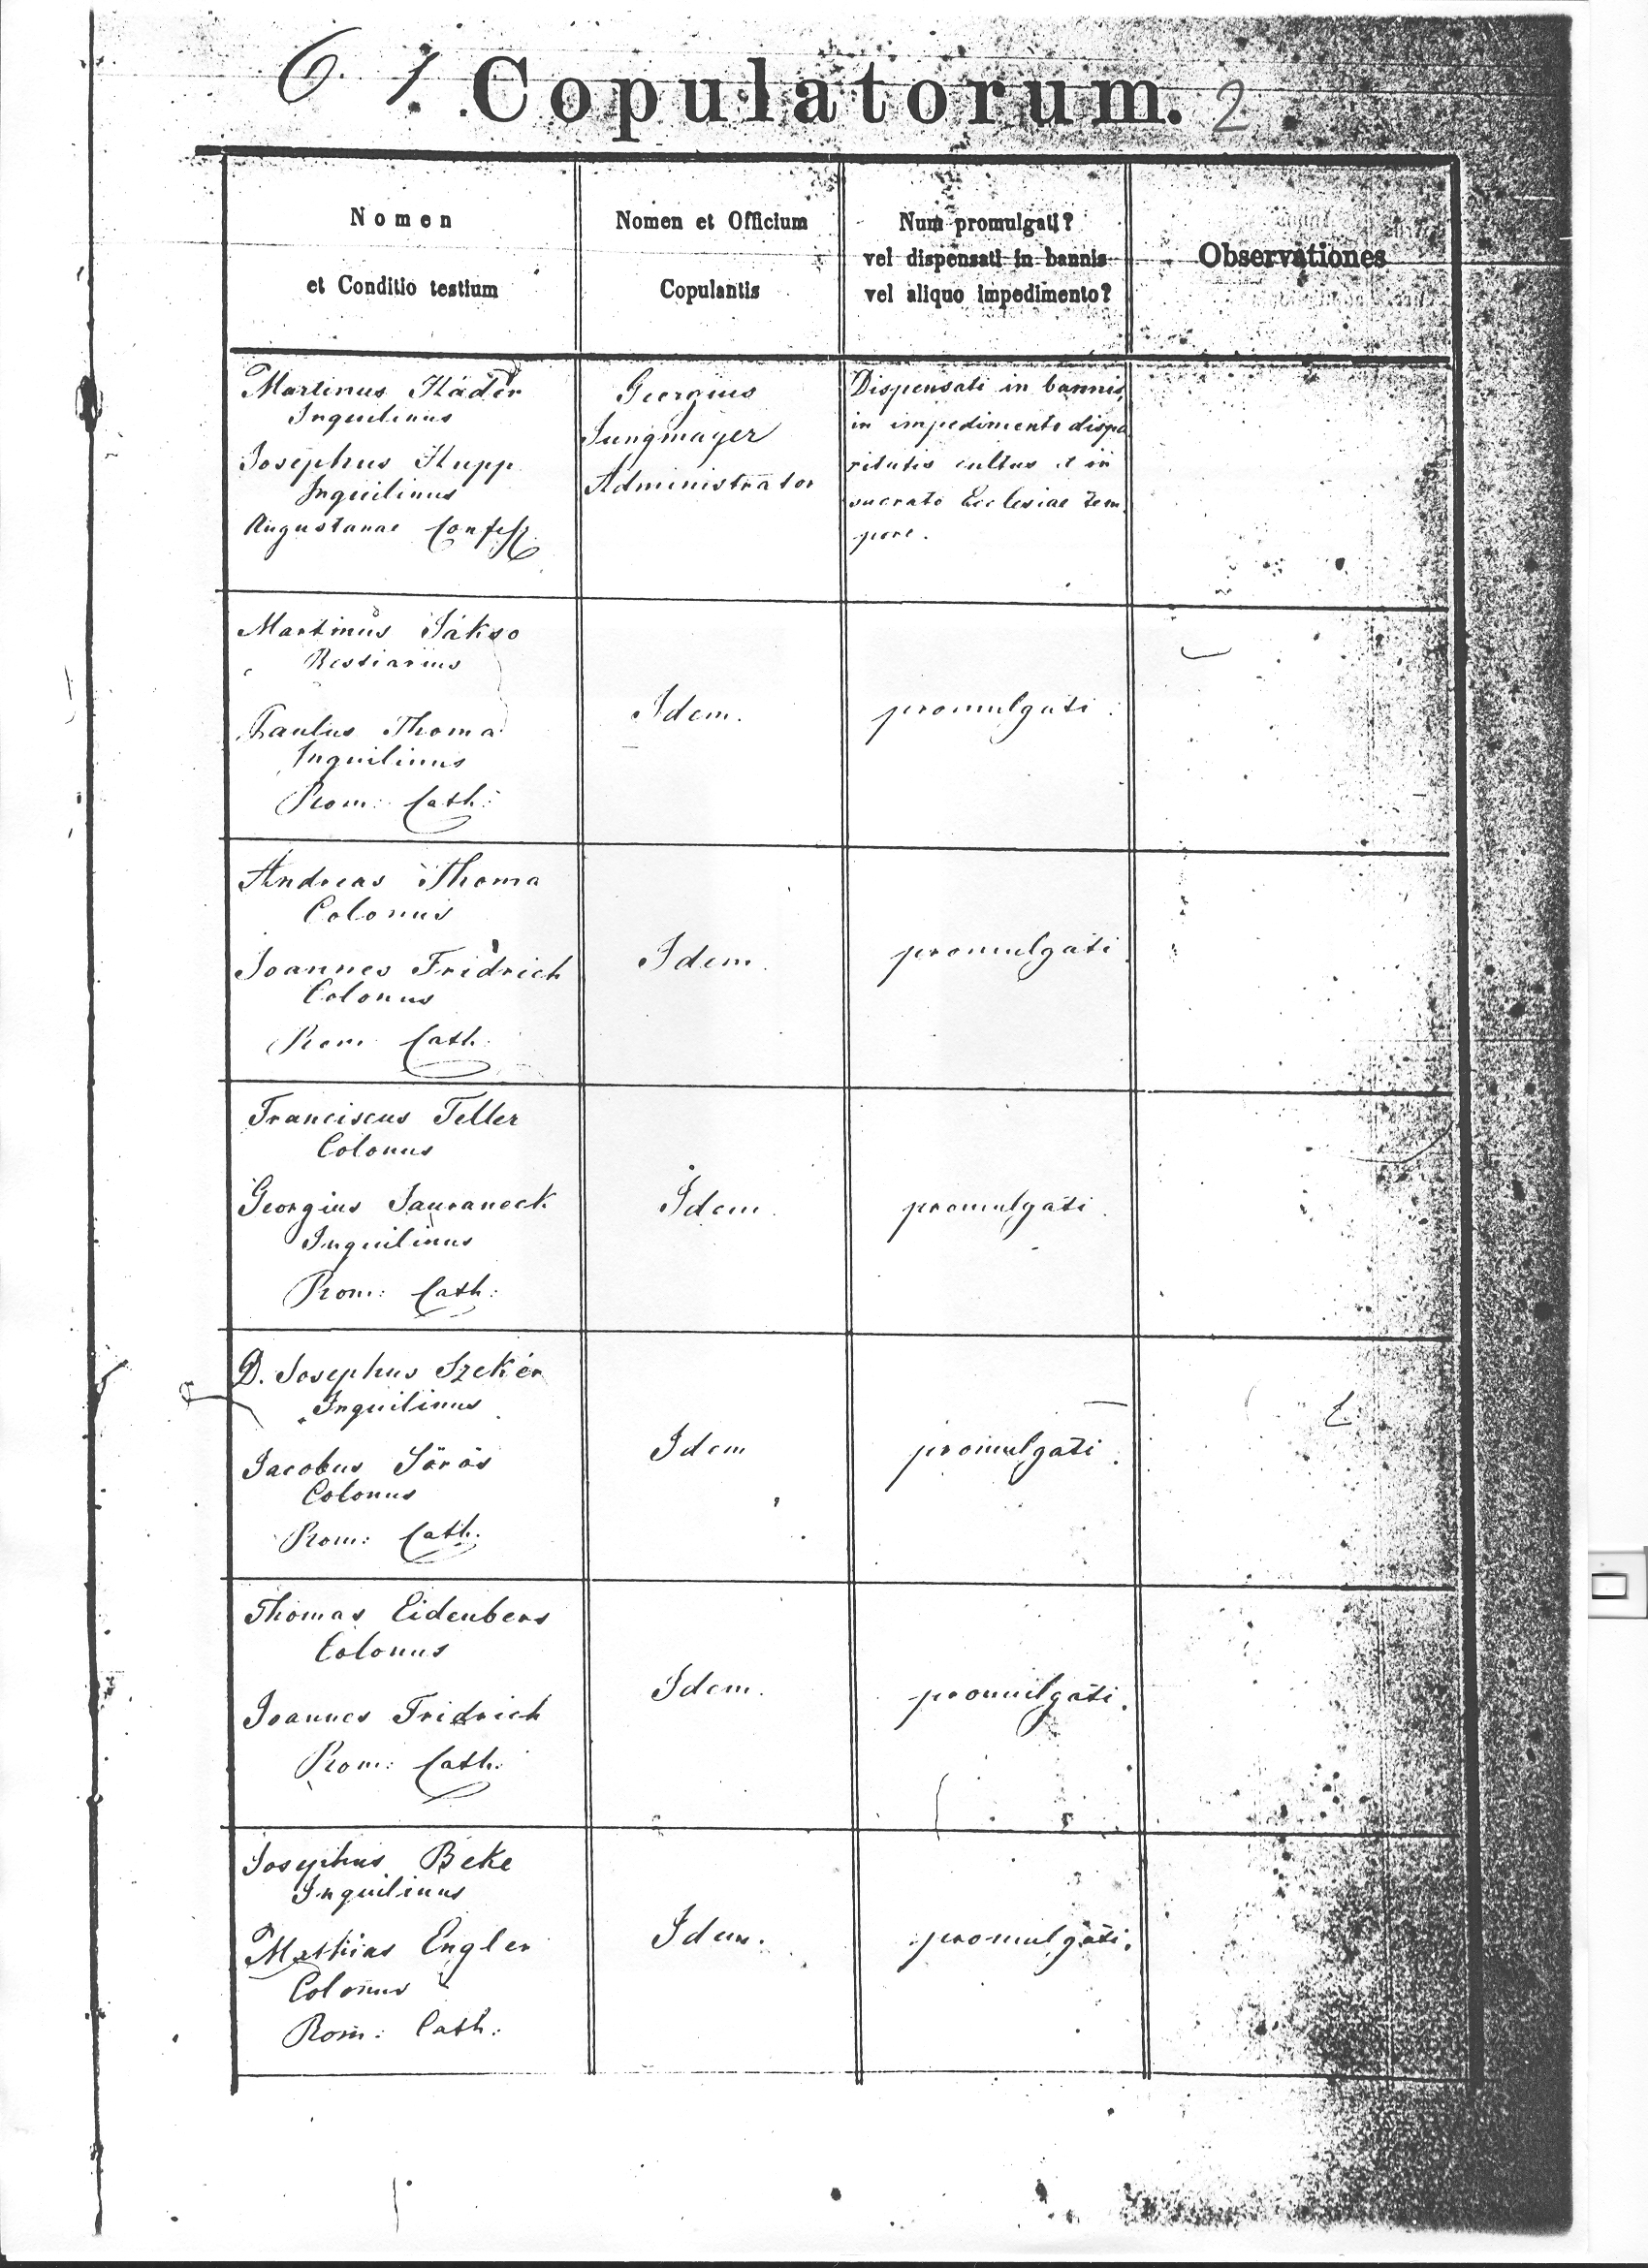 6. 7. Copulatorum. 2
Nomen
et Conditio testium
Nomen et Officium
Copulantis
Num promulgati?
vel dispensati in bannis
vel aliquo impedimento?
Observationes
Martinus Káder
Inquilinus
Josephus Kupp
Inquilinus
Augustanae Confess.
Georgius
Jungmayer
Administrator
Dispensati in bannis,
in impedimento dispa
ritatis cultus et in
sacrato Ecclesiae tem
pore.
Martinus Jákso
Bestiarius
Paulus Thoma
Inquilinus
Rom: Cath:
Idem.
promulgati.
Andreas Thoma
Colonus
Joannes Fridrich
Colonus
Rom Cath:
Idem.
promulgati.
Franciscus Teller
Colonus
Georgius Sauraneck
Inquilinus
Rom: Cath:
Idem.
promulgati.
D. Josephus Szekér
Inquilinus
Jacobus Sörös
Colonus
Rom: Cath.
Idem
promulgati.
Thomas Eidenbers
Colonus
Joannes Fridrich
Rom: Cath:
Idem.
promulgati.
Josephus Beke
Inquilinus
Mathias Engler
Colonus
Rom: Cath:
Idem.
promulgati.